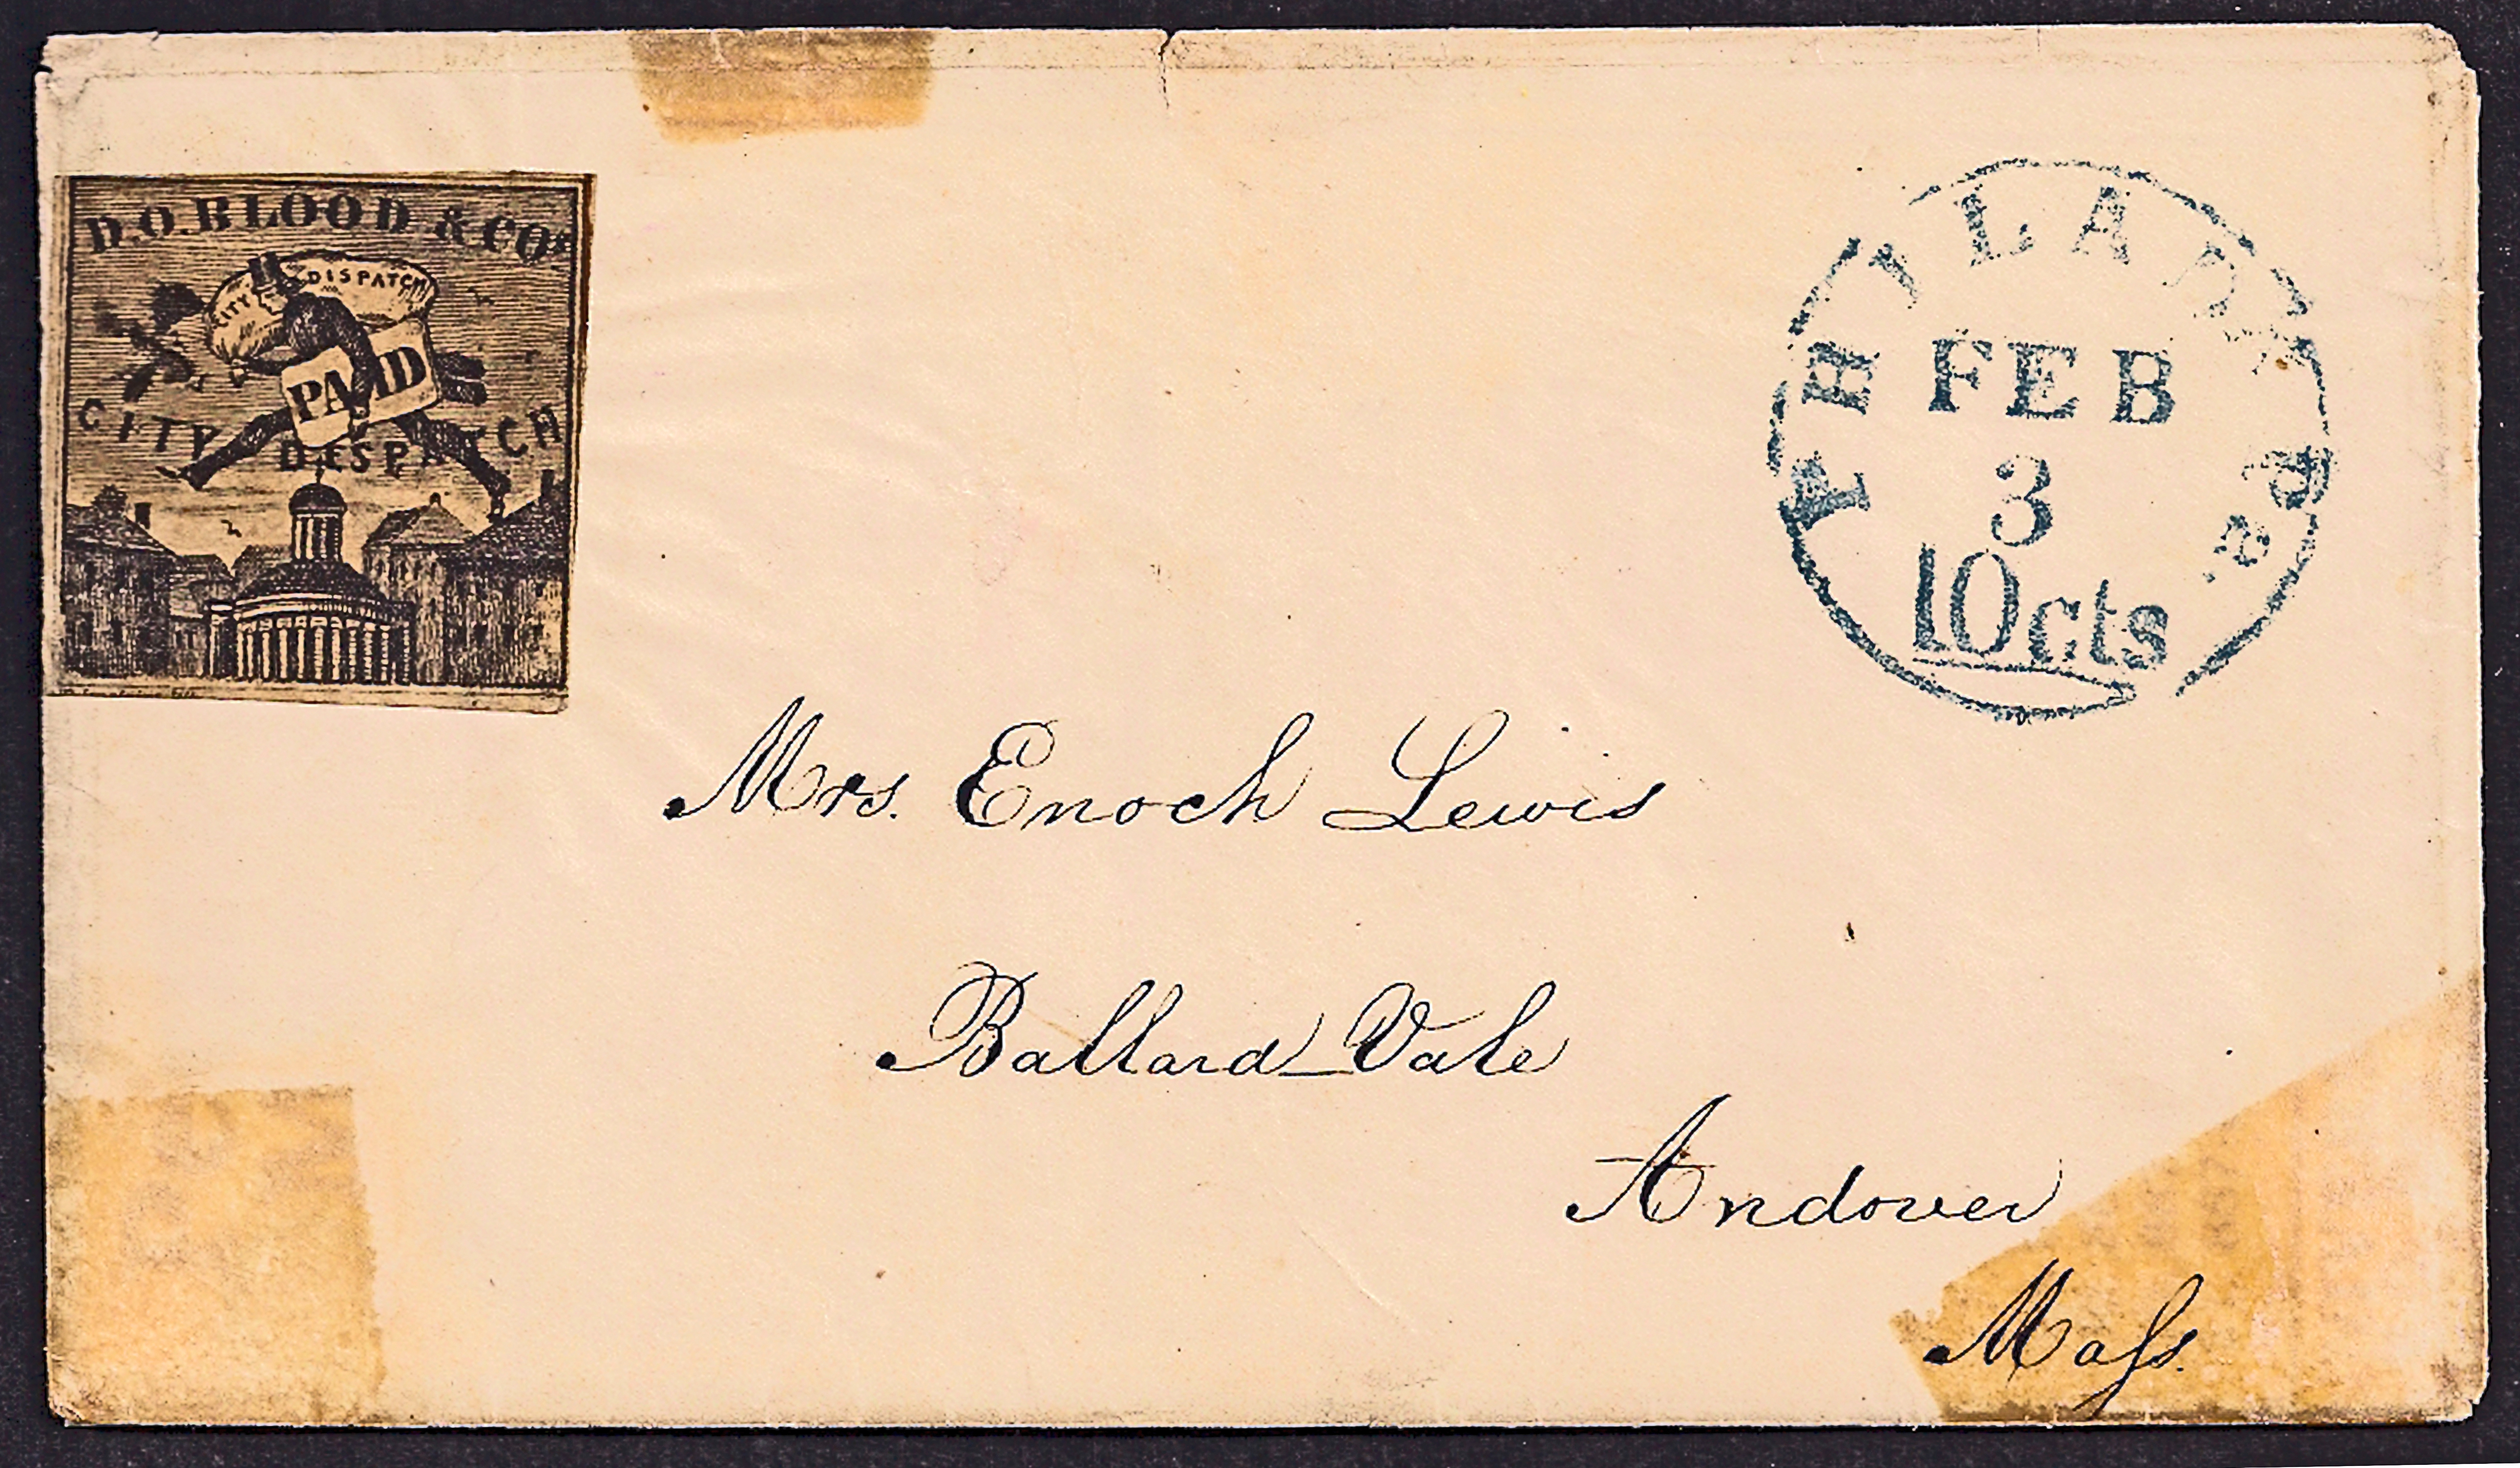 D.O.BLOOD & CO.s
CITY DISPATCH
PAID
CITY DESPATCH
PHILADA Pa.
FEB
3
10cts
Mrs. Enoch Lewis
Ballard Vale
Andover
Maſs.